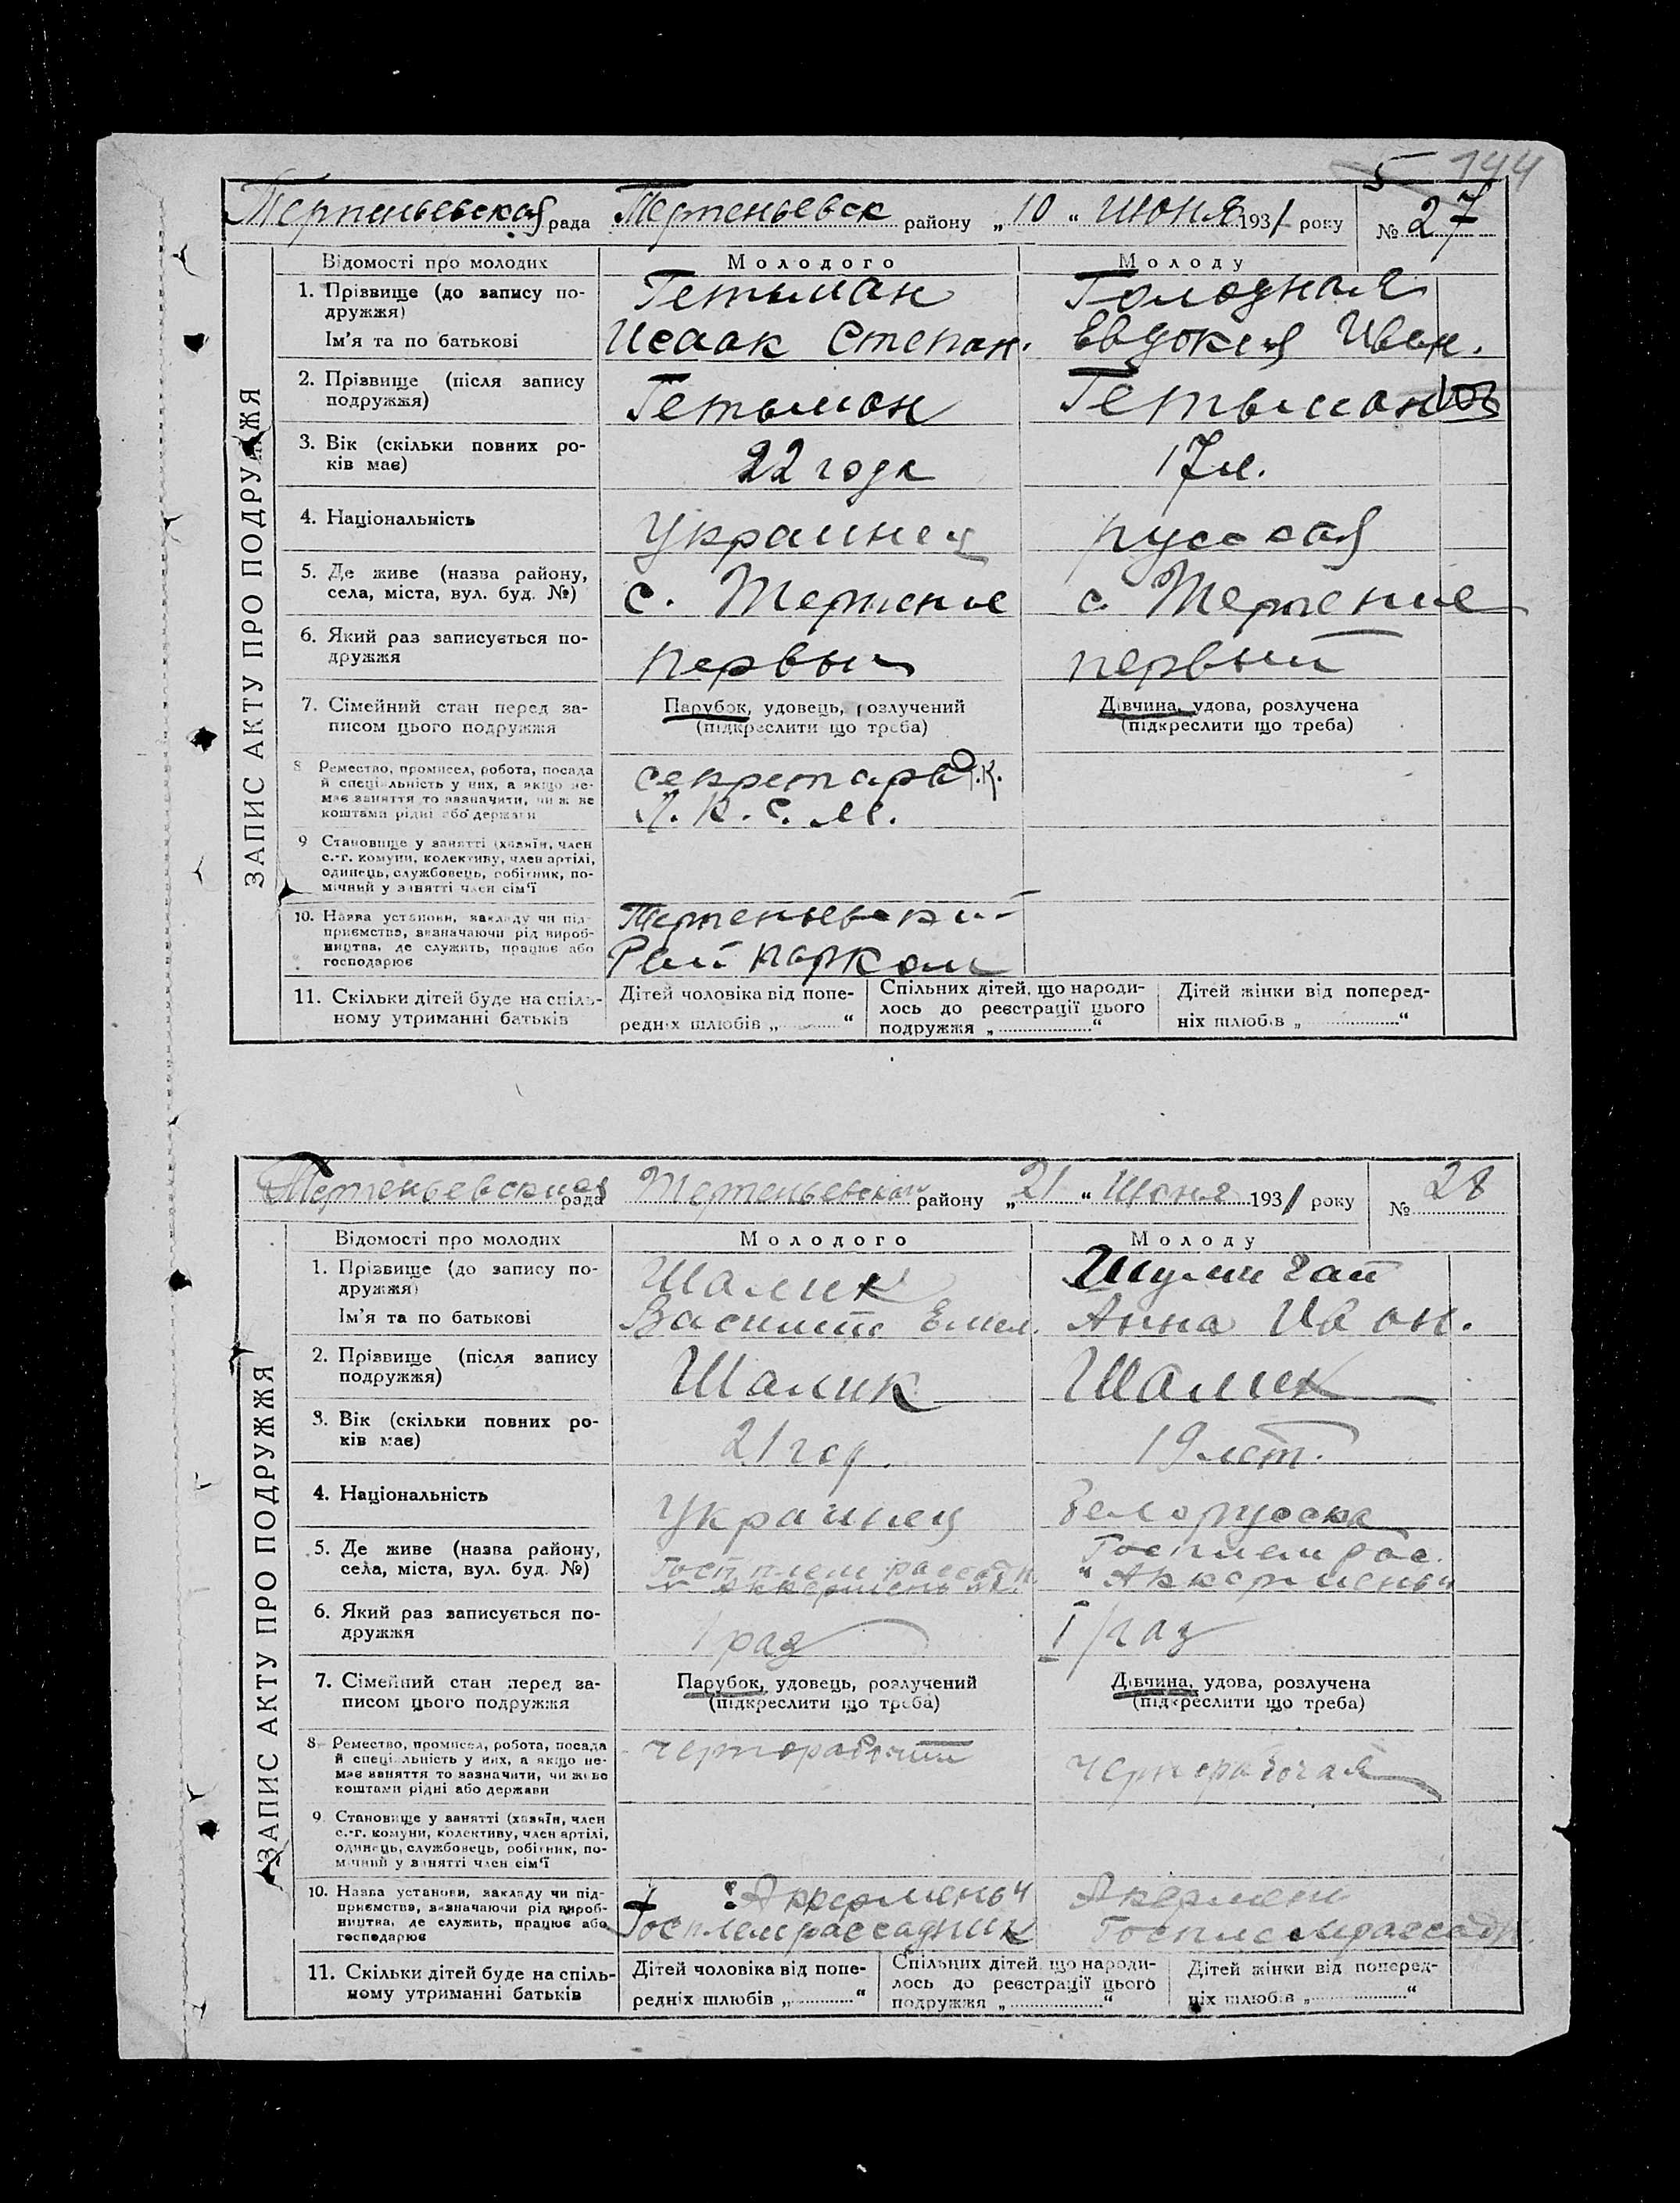 5 144
Терпеньевская рада Терпеньевск району „10“ июня 1931 року № 27
ЗАПИС АКТУ ПРО ПОДРУЖЖЯ
Відомості про молодих Молодого Молоду
1. Прізвище (до запису по-
дружжя) Гетьман Голодная
Ім'я та по батькові Исаак Степан. Евдокия Иван.
2. Прізвище (після запису
подружжя) Гетьман Гетьман
3. Вік (скільки повних ро-
ків має) 22 года 17 л.
4. Національність Украинец русская
5. Де живе (назва району,
села, міста, вул. буд. №) с. Терпение с. Терпение
6. Який раз записується по-
дружжя первый первый
7. Сімейний стан перед за-
писом цього подружжя
Парубок, удовець, розлучений
(підкреслити що треба)
Дівчина, удова, розлучена
(підкреслити що треба)
8 Ремество, промисел, робота, посада
й спеціяльність у них, а якщо не-
має заняття то зазначити, чи ж не
коштами рідні або держави
секретарь
Л. К. С. М.
9 Становище у занятті (хазяїн, член
с.-г. комуни, колективу, член артілі,
одинець, службовець, робітник, по-
мічний у занятті член сім'ї
10. Назва установи, закладу чи під-
приємства, визначаючи рід вироб-
ництва, де служить, працює або
господарює
Терпеньевский
Рай парком
11. Скільки дітей буде на спіль-
ному утриманні батьків
Дітей чоловіка від попе-
редніх шлюбів „ “
Спільних дітей, що народи-
лось до реєстрації цього
подружжя „ “
Дітей жінки від поперед-
ніх шлюбів „ “
Терпеньевская рада Терпеньевский району „21“ Июня 1931 року № 28
ЗАПИС АКТУ ПРО ПОДРУЖЖЯ
Відомості про молодих Молодого Молоду
1. Прізвище (до запису по-
дружжя) Шалик
Ім'я та по батькові Василий Емел. Анна Иван.
2. Прізвище (після запису
подружжя) Шалик Шалик
3. Вік (скільки повних ро-
ків має) 21 год. 19 лет.
4. Національність Украинец Белоруска
5. Де живе (назва району,
села, міста, вул. буд. №)
Госплем рас.
„Аккермень“
6. Який раз записується по-
дружжя 1 раз I раз
7. Сімейний стан перед за-
писом цього подружжя
Парубок, удовець, розлучений
(підкреслити що треба)
Дівчина, удова, розлучена
(підкреслити що треба)
8 Ремество, промисел, робота, посада
й спеціяльність у них, а якщо не-
має заняття то зазначити, чи ж не
коштами рідні або держави
чернорабочий чернорабочая
9. Становище у занятті (хазяїн, член
с.-г. комуни, колективу, член артілі,
одинець, службовець, робітник, по-
мічний у занятті член сім'ї
10. Назва установи, закладу чи під-
приємства, визначаючи рід вироб-
ництва, де служить, працює або
господарює
„Аккермень“ Акермен
Госплемрассадник Госплемрассадн.
11. Скільки дітей буде на спіль-
ному утриманні батьків
Дітей чоловіка від попе-
редніх шлюбів „ “
Спільних дітей, що народи-
лось до реєстрації цього
подружжя „ “
Дітей жінки від поперед-
ніх шлюбів „ “